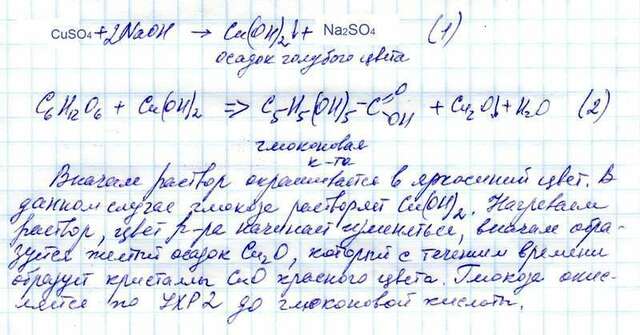 CuSO4 + 2NaOH → Cu(OH)2↓ + Na2SO4 (1)
осадок голубого цвета
C6H12O6 + Cu(OH)2 => C5H5(OH)5-C O OH + Cu2O↓ + H2O (2)
глюконовая
к-та
Вначале раствор окрашивается в яркосиний цвет. В
данном случае глюкоза растворяет Cu(OH)2. Нагреваем
раствор, цвет р-ра начинает изменяться, вначале обра-
зуется желтый осадок Cu2O, который с течением времени
образует кристаллы CuO красного цвета. Глюкоза окис-
ляется по УХР2 до глюконовой кислоты.